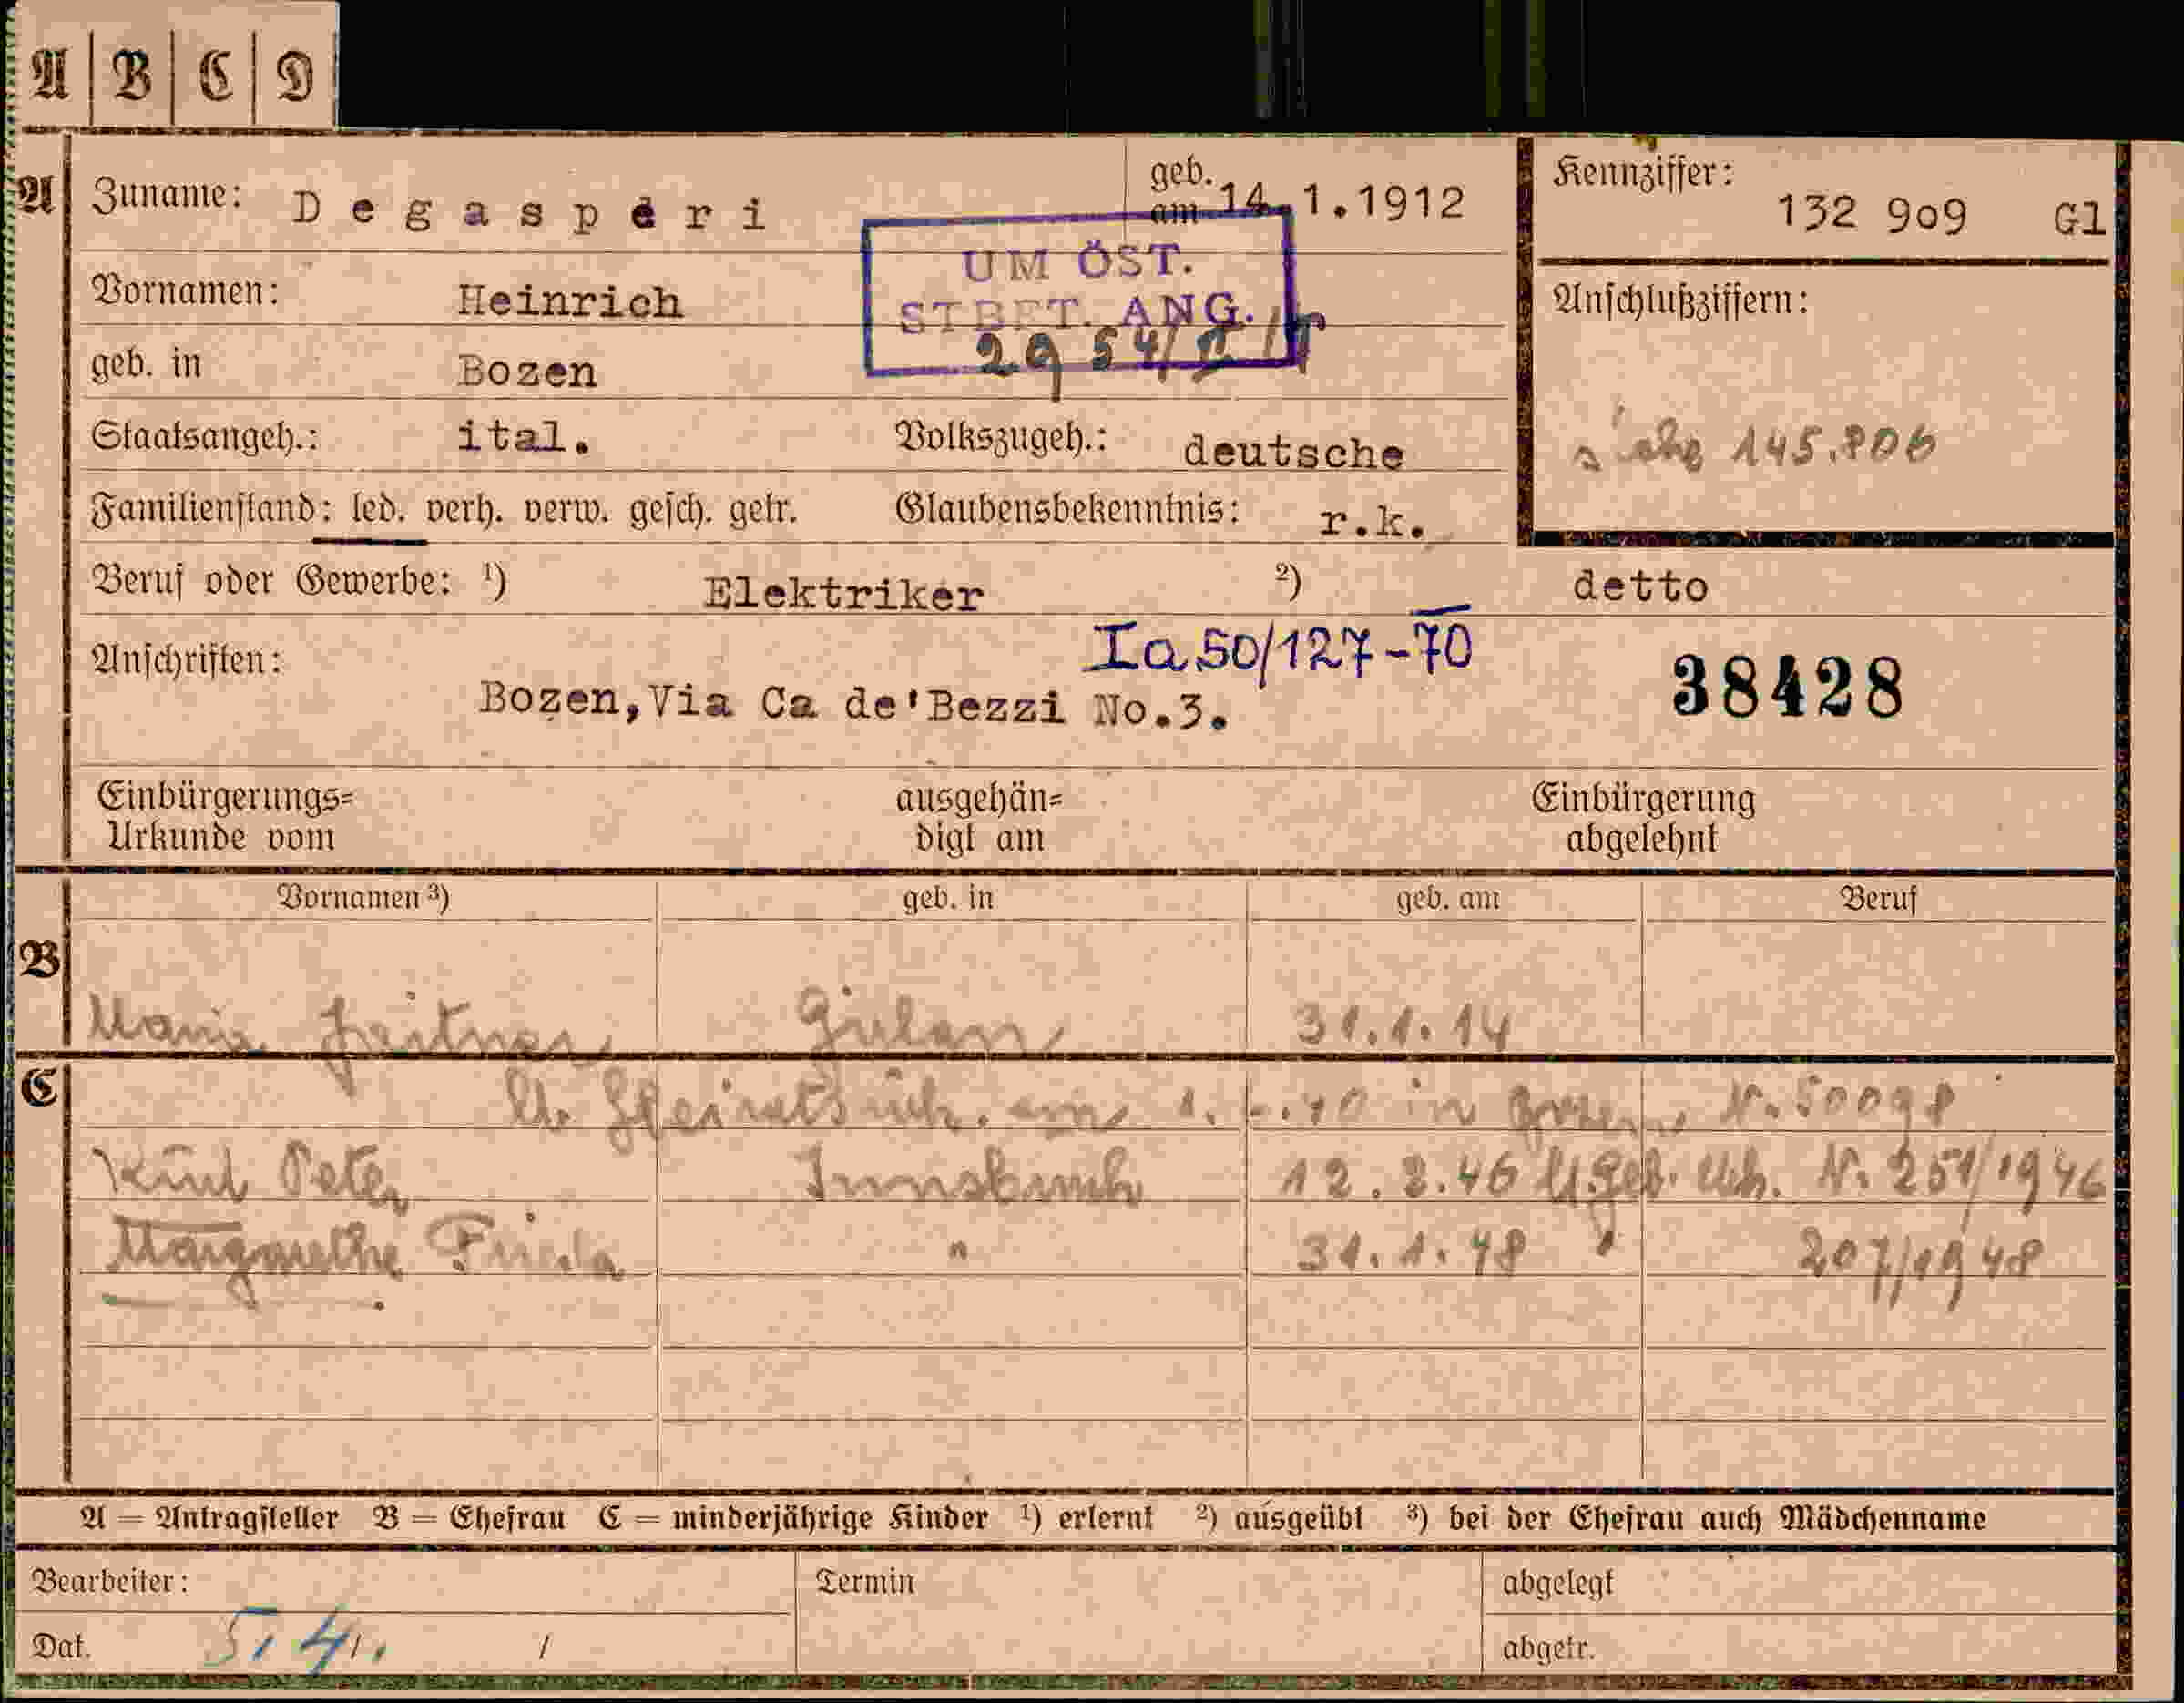 A B C D
A Zuname: Degasperi geb. am 14.1.1912 Kennziffer: 132 909 Gl
UM ÖST.
Vornamen: Heinrich STBFT. ANG. Anschlußziffern:
geb. in Bozen 2954/
Staatsangeh.: ital. Volkszugeh.: deutsche siehe 145.806
Familienstand: led. verh. verw. gesch. getr. Glaubensbekenntnis: r.k.
Beruf oder Gewerbe: ¹) Elektriker ²) detto
Ia50/127-70
Anschriften: Bozen, Via Ca de'Bezzi No.3. 38428
Einbürgerungs= ausgehän= Einbürgerung
Urkunde vom digt am abgelehnt
Vornamen ³) geb. in geb. am Beruf
B
Maria 31.1.14
C
lt. Heiratsurk. 1. .40 in Bozen, N. 50098
Kurt Peter Innsbruck 12.2.46 lt. Geb. Urk. N. 251/1946
Margarethe Frieda " 31.1.48 " 207/1948
A = Antragsteller B = Ehefrau C = minderjährige Kinder ¹) erlernt ²) ausgeübt ³) bei der Ehefrau auch Mädchenname
Bearbeiter: Termin abgelegt
Dat. 5.4. / abgetr.